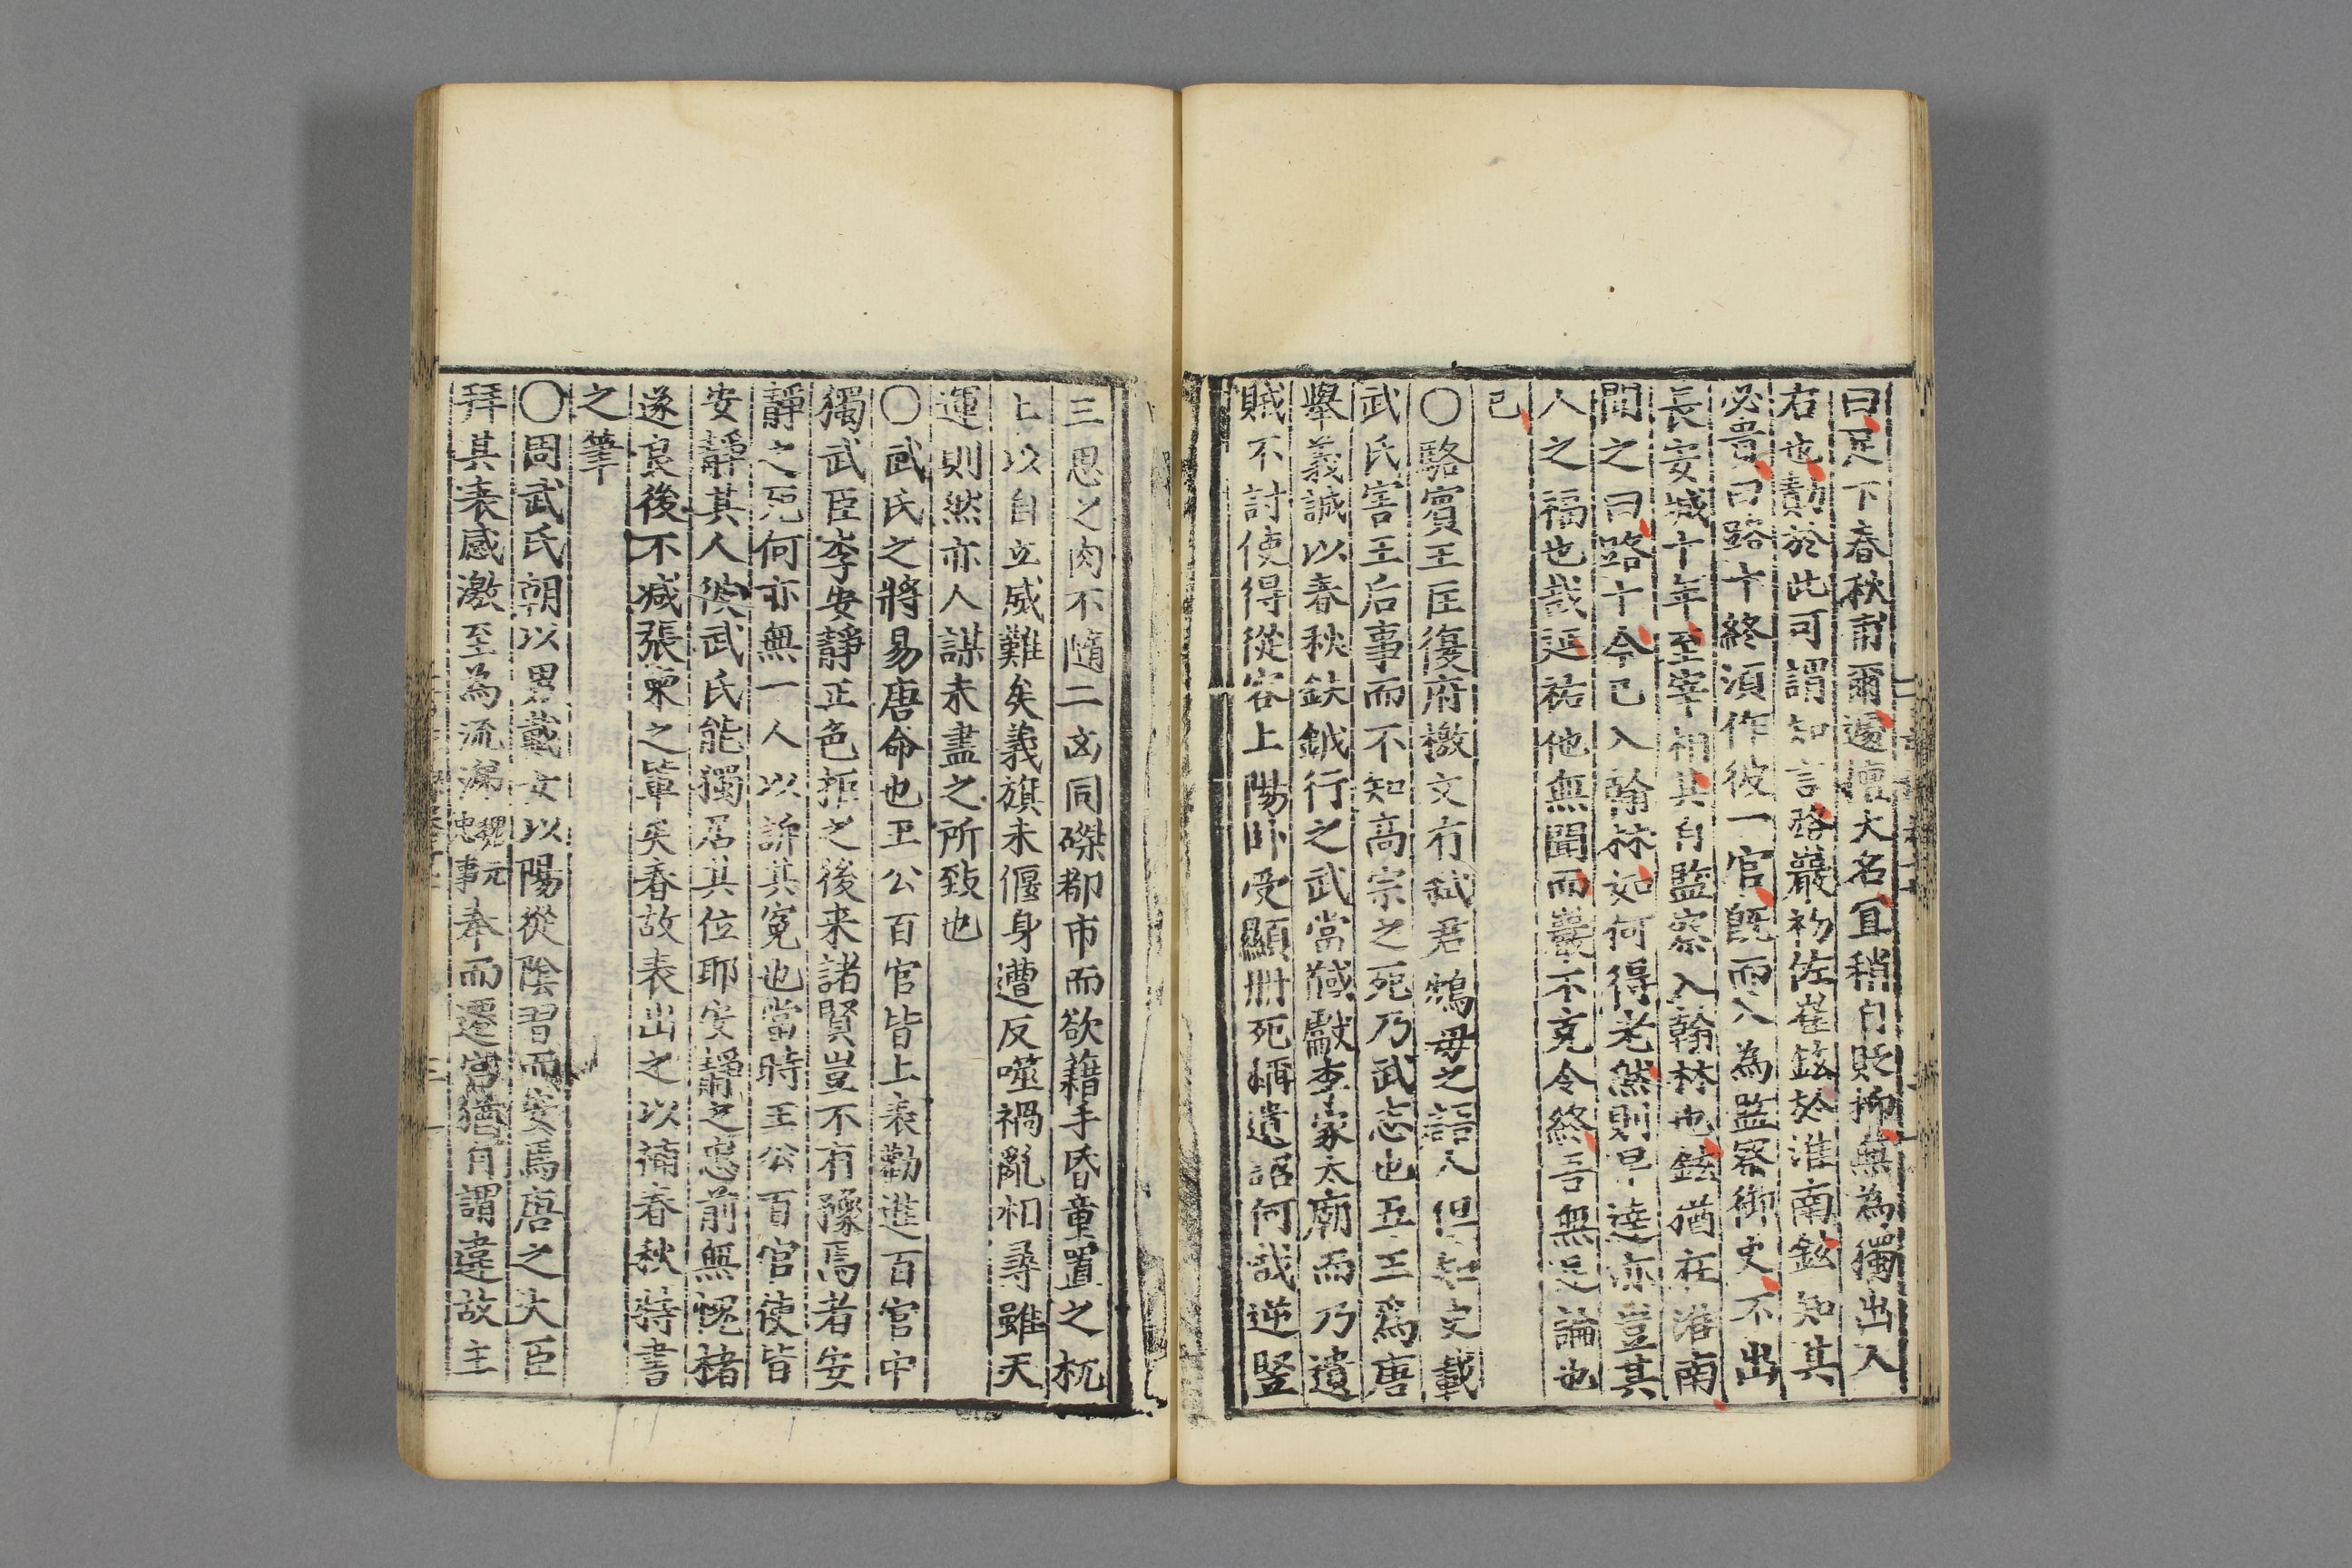 曰足下春秋甫爾遽懷大名宜稍自貶抑無為獨出入
右也勣於此可謂知言路巖初佐崔鉉於淮南鉉知其
必貴曰路十終須作彼一官旣而入為監察御史不出
長安城十年至宰相其自監察入翰林也鉉猶在淮南
聞之曰路十今已入翰林如何得老然則早達亦豈其
人之福也哉延祐他無聞而巖不克令終吾無疑論也
已
〇駱賓王匡復府檄文有弑君鴆母之語人但知史載
武氏害王后事而不知高宗之死乃武志也五王為唐
舉義誠以春秋鈇鉞行之武當馘獻李家太廟而乃遺
賊不討使得從容上陽卧受顯冊死稱遺詔何哉逆豎
三思之肉不隨二凶同磔都市而欲藉手昏童置之杌
上以自立威難矣義旗未偃身遭反噬禍亂相尋雖天
運則然亦人謀未盡之所致也
〇武氏之將易唐命也王公百官皆上表勸進百官中
獨武臣李安靜正色拒之後来諸賢豈不有豫焉者安
靜之死何亦無一人以訴其冤也當時王公百官使皆
安靜其人俟武氏能獨居其位耶安靜之忠前無愧褚
遂良後不减張柬之軰矣吾故表出之以補春秋特書
之筆
〇周武氏朝以男戴女以陽從陰習而安焉唐之大臣
拜其表感激至為流涕魏元忠事奉而遷宮猶有謂違故主